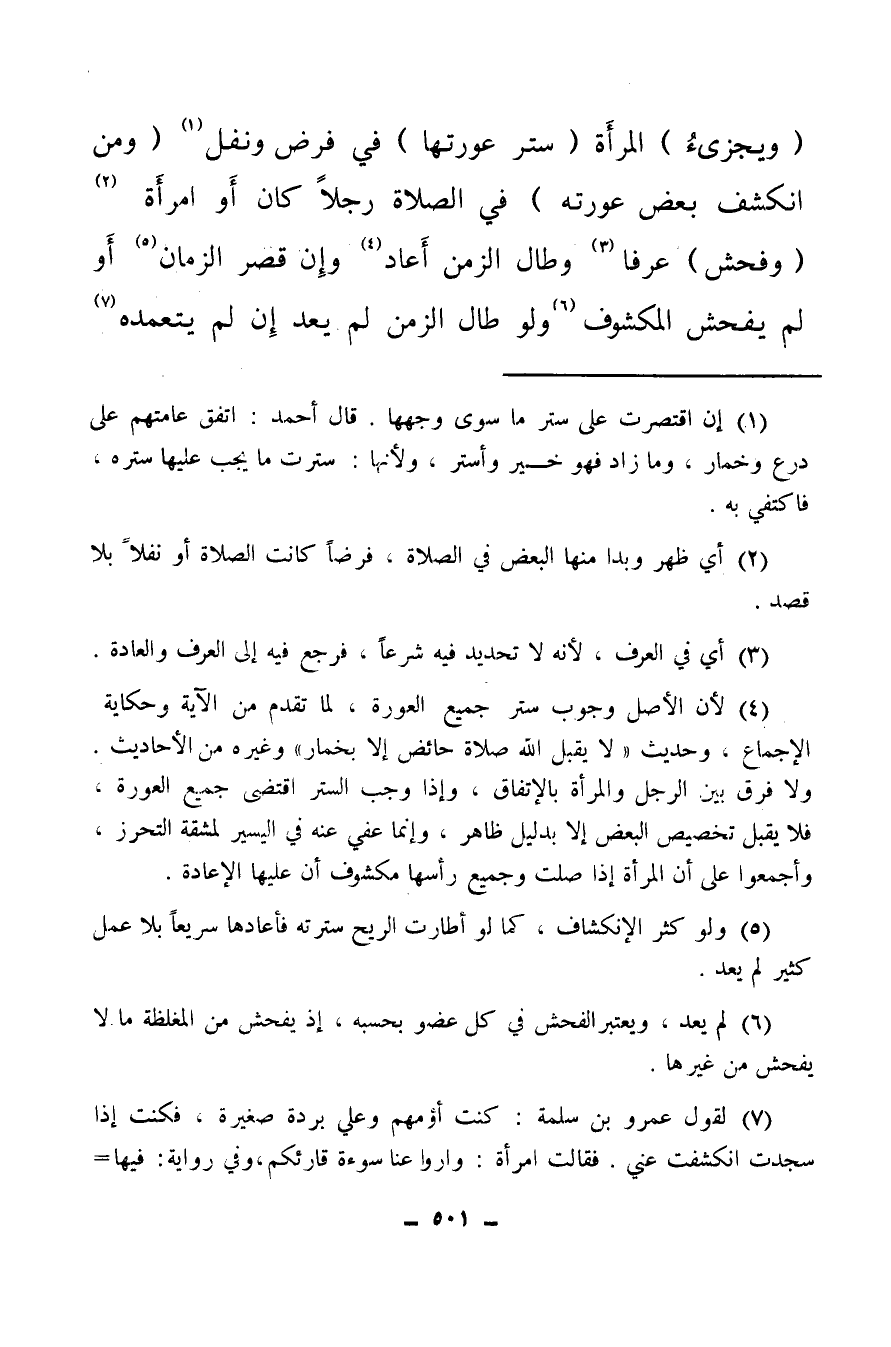 ( ويجزىءُ ) المرأَة ( ستر عورتها ) في فرض ونفل(١) ( ومن
انكشف بعض عورته ) في الصلاة رجلاً كان أَو امرأَة (٢)
( وفحش ) عرفا (٣) وطال الزمن أَعاد(٤) وإِن قصر الزمان(٥) أَو
لم يفحش المكشوف (٦) ولو طال الزمن لم يعد إِن لم يتعمده(٧)
(١) إن اقتصرت على ستر ما سوى وجهها . قال أحمد : اتفق عامتهم على
درع وخمار ، وما زاد فهو خير وأستر ، ولأنها : سترت ما يجب عليها ستره ،
فاكتفي به .
(٢) أي ظهر وبدا منها البعض في الصلاة ، فرضاً كانت الصلاة أو نفلاً بلا
قصد .
(٣) أي في العرف ، لأنه لا تحديد فيه شرعاً ، فرجع فيه إلى العرف والعادة .
(٤) لأن الأصل وجوب ستر جميع العورة ، لما تقدم من الآية وحكاية
الإجماع ، وحديث « لا يقبل الله صلاة حائض إلا بخمار» وغيره من الأحاديث .
ولا فرق بين الرجل والمرأة بالإتفاق ، وإذا وجب الستر اقتضى جميع العورة ،
فلا يقبل تخصيص البعض إلا بدليل ظاهر ، وإنما عفي عنه في اليسير لمشقة التحرز ،
وأجمعوا على أن المرأة إذا صلت وجميع رأسها مكشوف أن عليها الإعادة .
(٥) ولو كثر الإنكشاف ، كما لو أطارت الريح سترته فأعادها سريعاً بلا عمل
كثير لم يعد .
(٦) لم يعد ، ويعتبر الفحش في كل عضو بحسبه ، إذ يفحش من المغلظة ما لا
يفحش من غيرها .
(٧) لقول عمرو بن سلمة : كنت أؤمهم وعلي بردة صغيرة ، فكنت إذا
سجدت انكشفت عني . فقالت امرأة : واروا عنا سوءة قارئكم،وفي رواية: فيها=
ـ ٥٠١ ـ